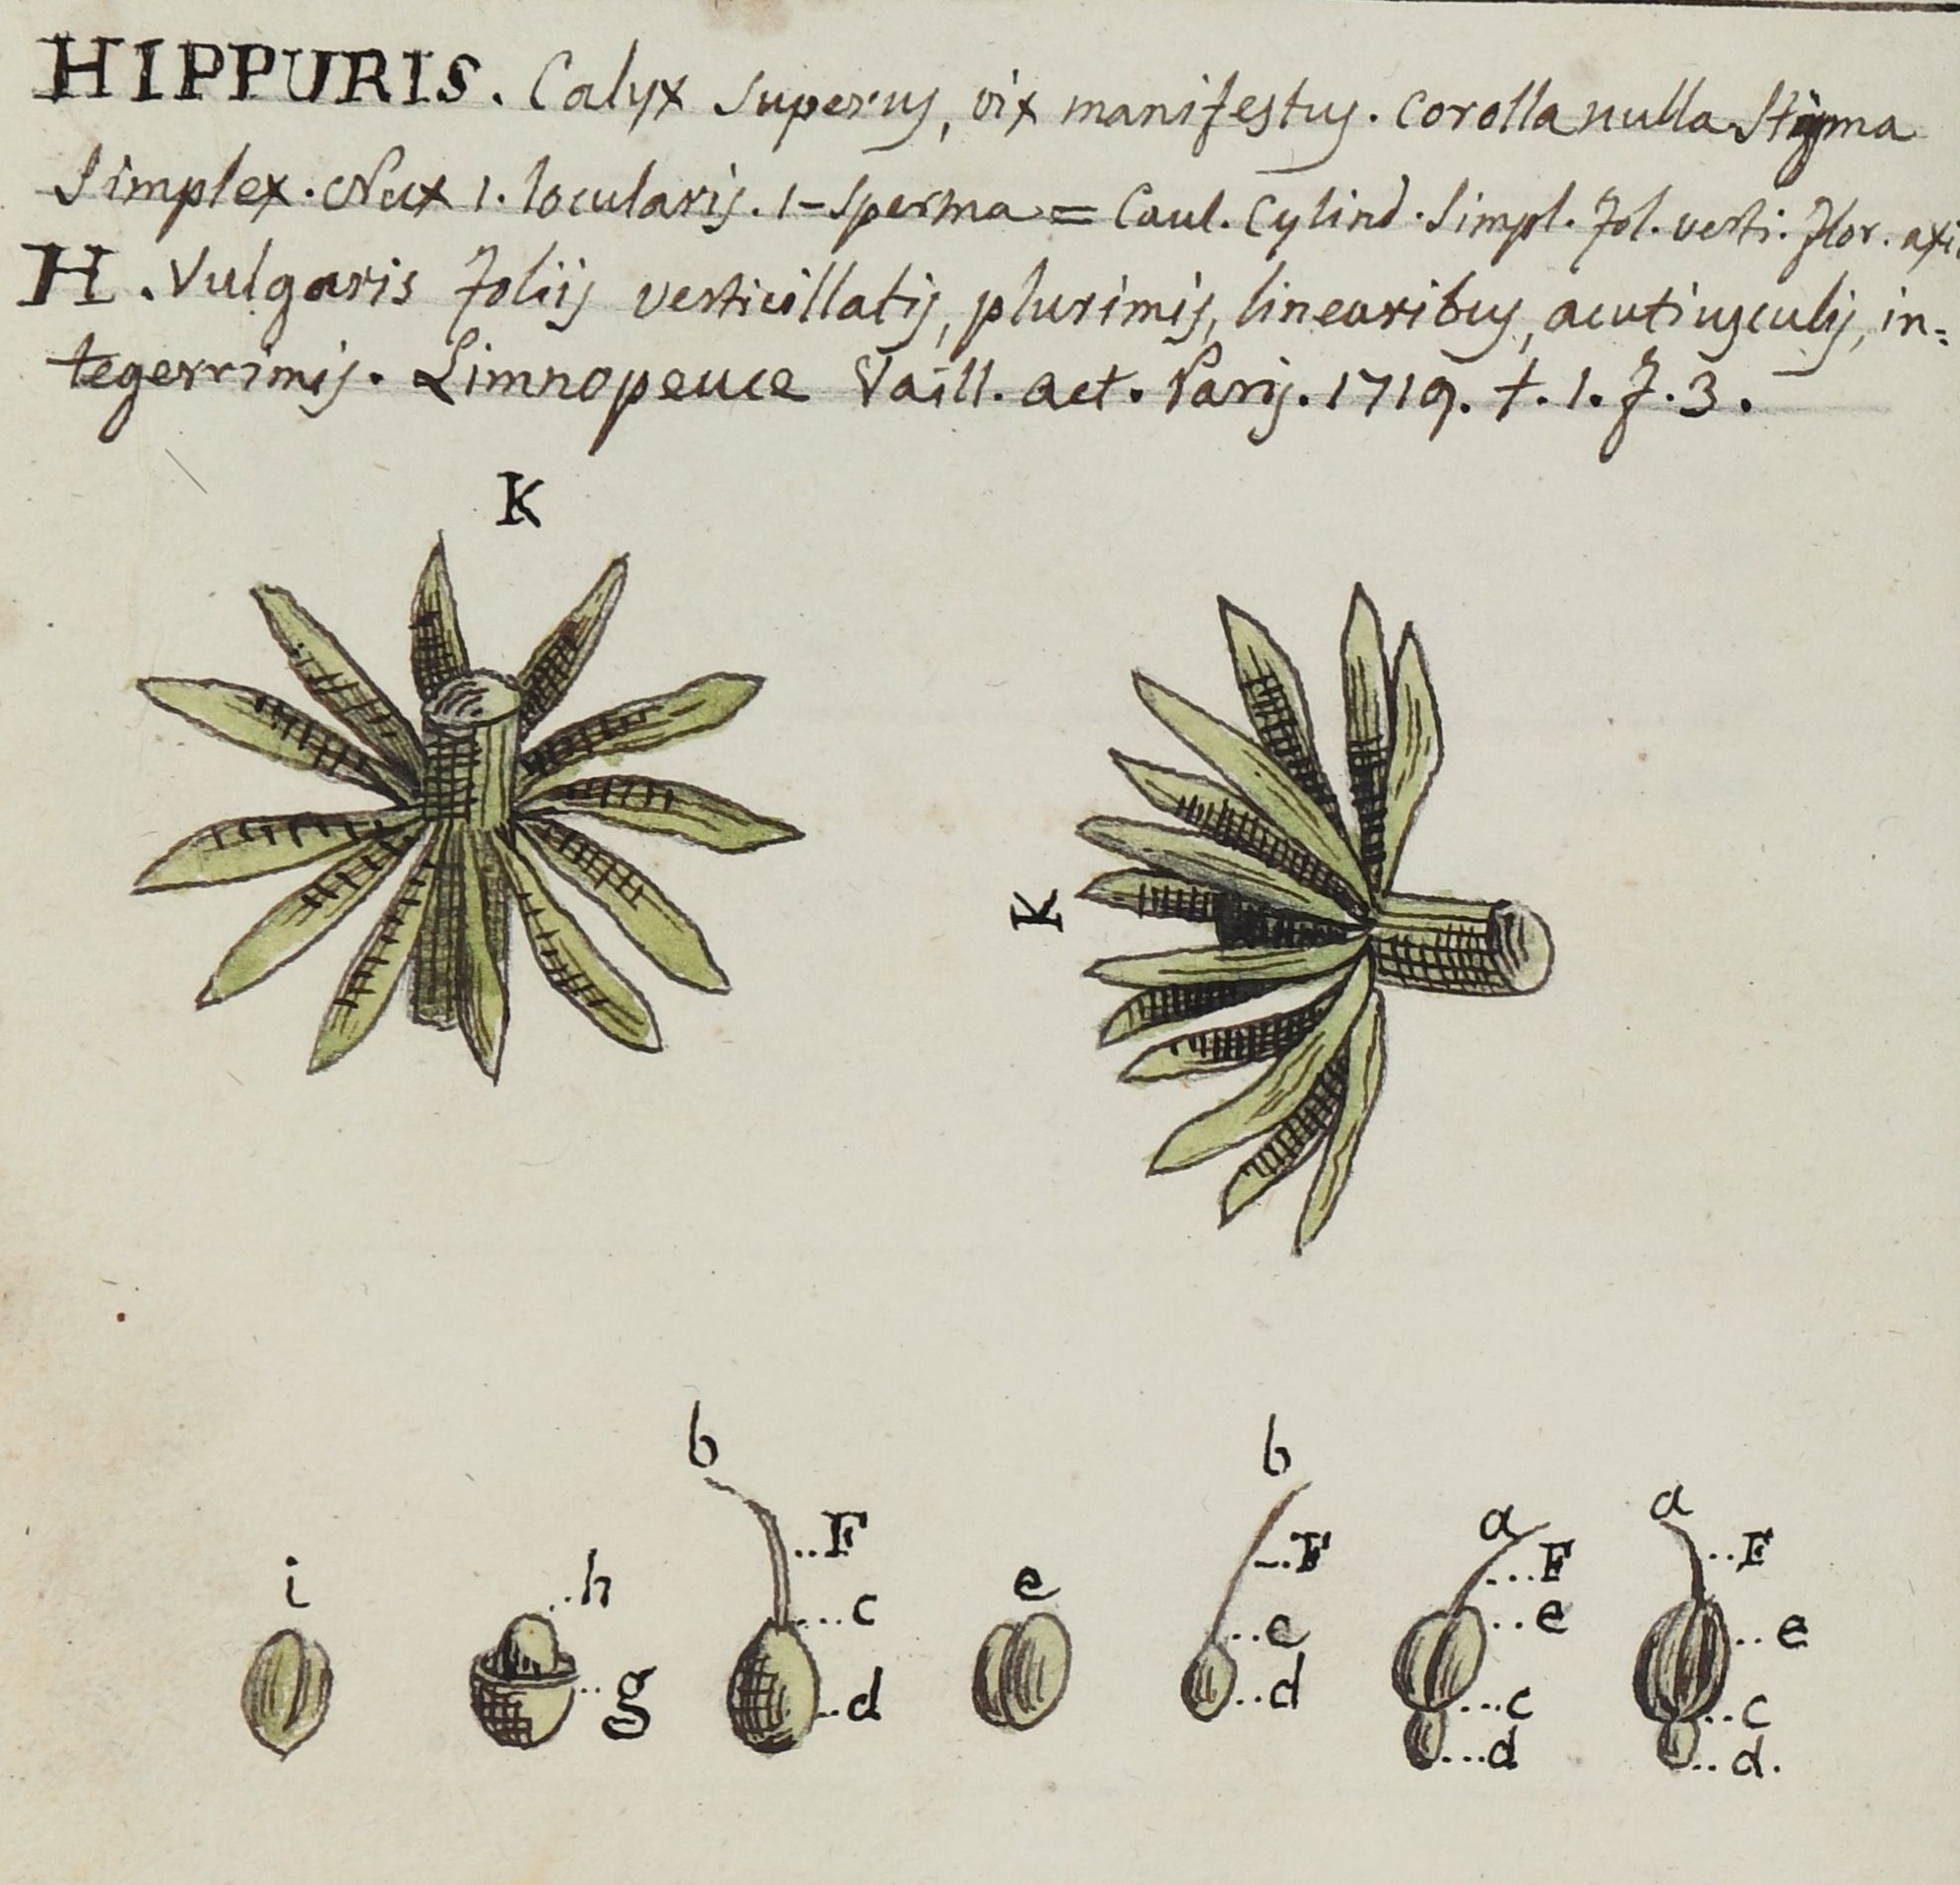 HIPPURIS. Calyx superus, vix manifestus. Corolla nulla Stigma
Simplex. Nux 1. locularis. 1-sperma = Caul. Cylind. Simpl. Fol. verti. Flor. axi
H. Vulgaris Foliis verticillatis, plurimis, linearibus, acutiusculis, in-
tegerrimis. Limnopeuce Vaill. act. Paris. 1719. t. 1. f. 3.
K
K
b
b
a
a
F
F
F
F
i
h
c
e
e
e
e
g
d
d
c
c
d
d.